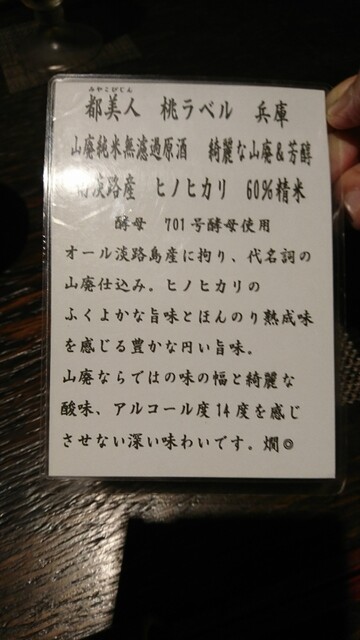 みやこびじん
都美人 桃ラベル 兵庫
山廃純米無濾過原酒 綺麗な山廃&芳醇
南淡路産 ヒノヒカリ 60%精米
酵母 701号酵母使用
オール淡路島産に拘り、代名詞の
山廃仕込み。ヒノヒカリの
ふくよかな旨味とほんのり熟成味
を感じる豊かな円い旨味。
山廃ならではの味の幅と綺麗な
酸味、アルコール度14度を感じ
させない深い味わいです。燗◎